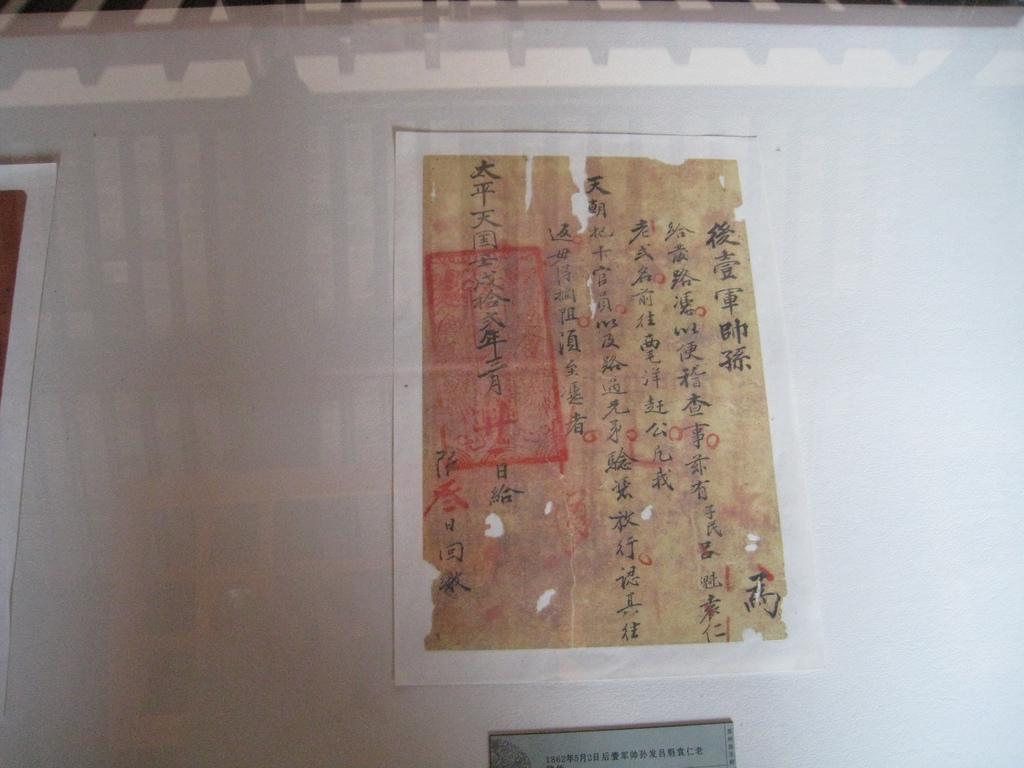 後壹軍帥孫 為
給發路憑以便稽查事茲有子民呂魁袁仁
老弍名前往西毛洋赶公凡我
天朝把卡官員以及路過兄弟驗憑放行認真往
返毋得攔阻須至憑者
太平天囯壬戌拾弍年三月廿 日給
限叁日回繳
1862年5月2日后壹军帅孙发吕魁袁仁老